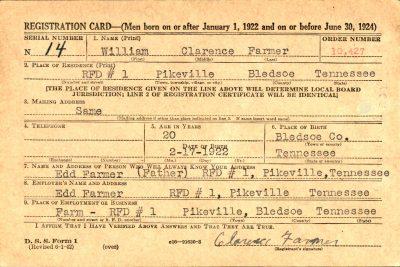 REGISTRATION CARD—(Men born on or after January 1, 1922 and on or before June 30, 1924)
SERIAL NUMBER 1. NAME (Print) ORDER NUMBER
N 14 William Clarence Farmer 10,427
(First) (Middle) (Last)
2. PLACE OF RESIDENCE (Print)
RFD # 1 Pikeville Bledsoe Tennessee
(Number and street) (Town, township, village, or city) (County) (State)
[THE PLACE OF RESIDENCE GIVEN ON THE LINE ABOVE WILL DETERMINE LOCAL BOARD
JURISDICTION; LINE 2 OF REGISTRATION CERTIFICATE WILL BE IDENTICAL]
3. MAILING ADDRESS
Same
(Mailing address if other than place indicated on line 2. If same insert word same)
4. TELEPHONE 5. AGE IN YEARS 6. PLACE OF BIRTH
20 Bledsoe Co.
DATE OF BIRTH (Town or county)
2-17-1922 Tennessee
(Exchange) (Number) (Mo.) (Day) (Yr.) (State or country)
7. NAME AND ADDRESS OF PERSON WHO WILL ALWAYS KNOW YOUR ADDRESS
Edd Farmer (Father) RFD # 1, Pikeville, Tennessee
8. EMPLOYER'S NAME AND ADDRESS
Edd Farmer RFD # 1, Pikeville, Tennessee
9. PLACE OF EMPLOYMENT OR BUSINESS
Farm - RFD # 1 Pikeville, Bledsoe Tennessee
(Number and street or R. F. D. number) (Town) (County) (State)
I AFFIRM THAT I HAVE VERIFIED ABOVE ANSWERS AND THAT THEY ARE TRUE.
D. S. S. Form 1 Clarence Farmer
(Revised 6-1-42) (over) (Registrant's signature)